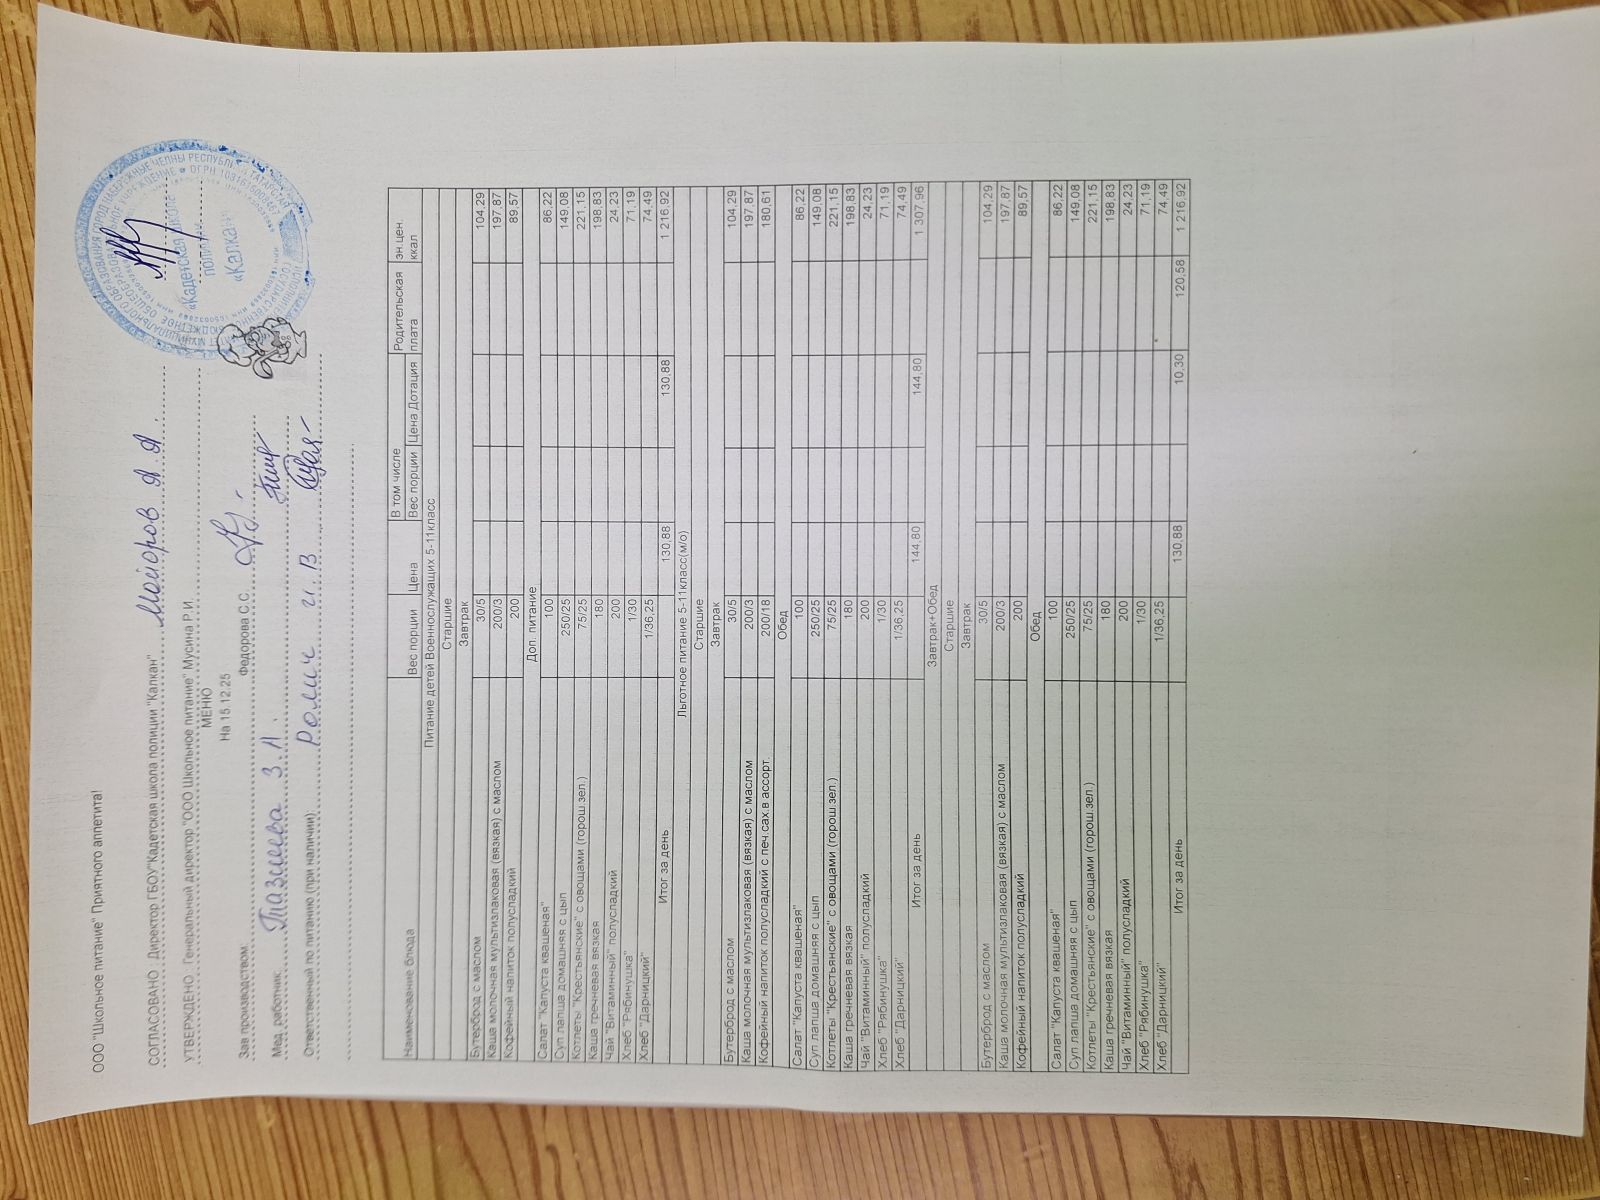 ООО "Школьное питание" Приятного аппетита!
СОГЛАСОВАНО Директор ГБОУ"Кадетская школа полиции "Калкан" Майоров А.А.
УТВЕРЖДЕНО Генеральный директор "ООО Школьное питание" Мусина Р.И.
МЕНЮ
На 15.12.25
Зав.производством. Федорова С.С.
Мед. работник. З.Л.
Ответственный по питанию (при наличии) И.В
«Кадетская школа
полиции
«Калкан»
Наименование блюда Вес порции Цена В том числе Родительская плата эн.цен. ккал
Вес порции Цена Дотация
Питание детей Военнослужащих 5-11класс
Старшие
Завтрак
Бутерброд с маслом 30/5 104,29
Каша молочная мультизлаковая (вязкая) с маслом 200/3 197,87
Кофейный напиток полусладкий 200 89,57
Доп. питание
Салат "Капуста квашеная" 100 86,22
Суп лапша домашняя с цып 250/25 149,08
Котлеты "Крестьянские" с овощами (горош.зел.) 75/25 221,15
Каша гречневая вязкая 180 198,83
Чай "Витаминный" полусладкий 200 24,23
Хлеб "Рябинушка" 1/30 71,19
Хлеб "Дарницкий" 1/36,25 74,49
Итог за день 130,88 130,88 1 216,92
Льготное питание 5-11класс(м/о)
Старшие
Завтрак
Бутерброд с маслом 30/5 104,29
Каша молочная мультизлаковая (вязкая) с маслом 200/3 197,87
Кофейный напиток полусладкий с печ.сах.в ассорт. 200/18 180,61
Обед
Салат "Капуста квашеная" 100 86,22
Суп лапша домашняя с цып 250/25 149,08
Котлеты "Крестьянские" с овощами (горош.зел.) 75/25 221,15
Каша гречневая вязкая 180 198,83
Чай "Витаминный" полусладкий 200 24,23
Хлеб "Рябинушка" 1/30 71,19
Хлеб "Дарницкий" 1/36,25 74,49
Итог за день 144,80 144,80 1 307,96
Завтрак+Обед
Старшие
Завтрак
Бутерброд с маслом 30/5 104,29
Каша молочная мультизлаковая (вязкая) с маслом 200/3 197,87
Кофейный напиток полусладкий 200 89,57
Обед
Салат "Капуста квашеная" 100 86,22
Суп лапша домашняя с цып 250/25 149,08
Котлеты "Крестьянские" с овощами (горош.зел.) 75/25 221,15
Каша гречневая вязкая 180 198,83
Чай "Витаминный" полусладкий 200 24,23
Хлеб "Рябинушка" 1/30 71,19
Хлеб "Дарницкий" 1/36,25 74,49
Итог за день 130,88 10,30 120,58 1 216,92